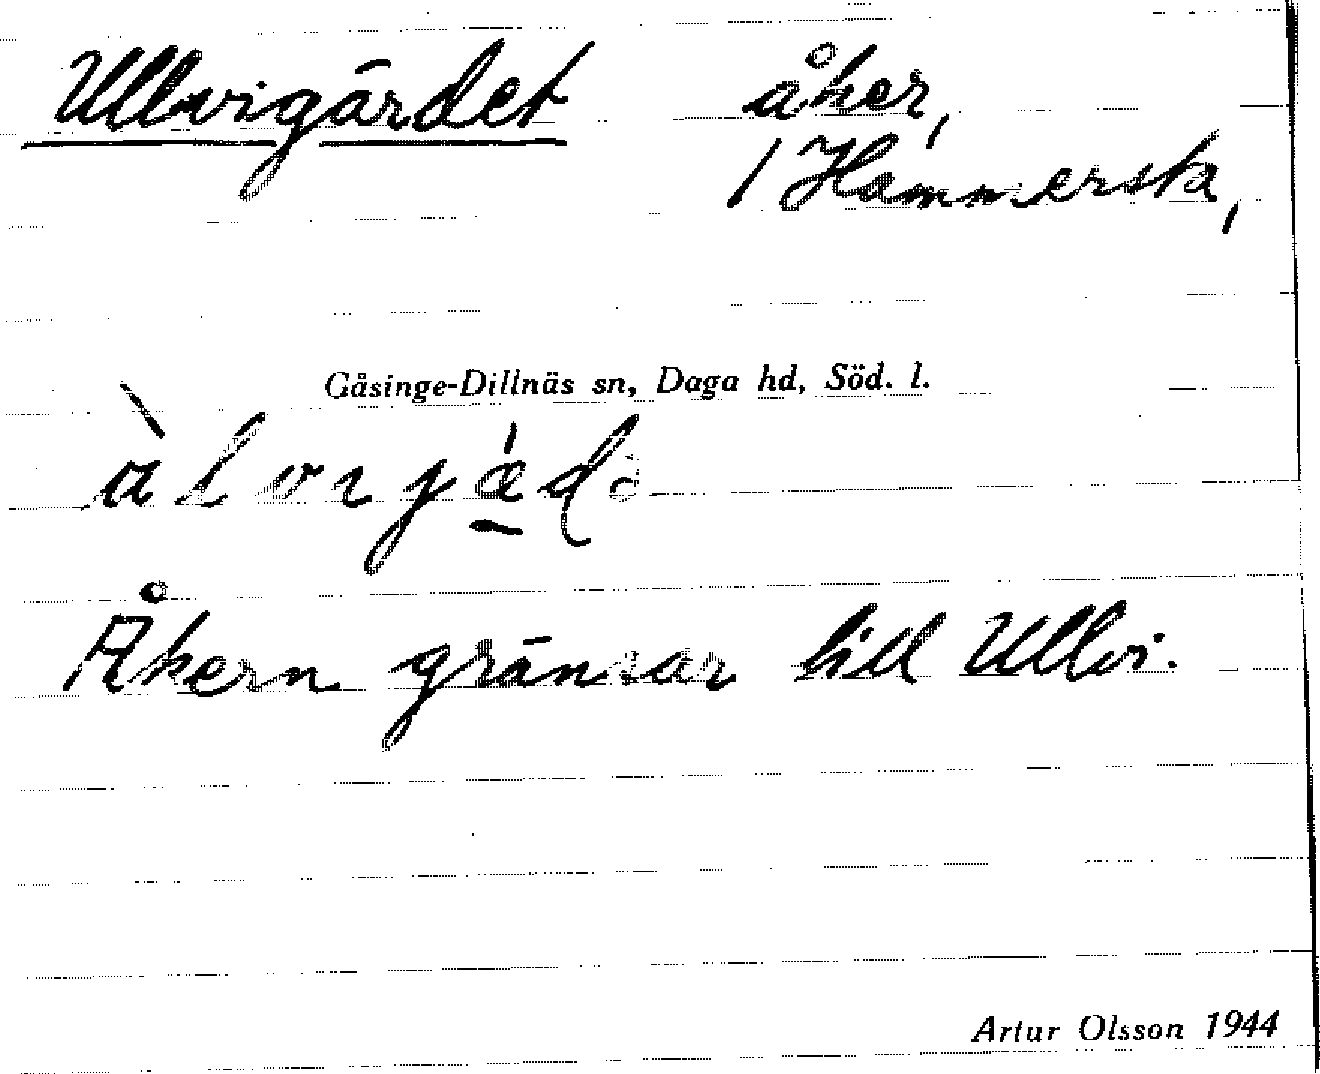 Ullvigärdet åker,
/ Hammersta,
Gåsinge-Dillnäs sn, Daga hd, Söd. l.
Åkern gränsar till Ullvi.
Artur Olsson 1944